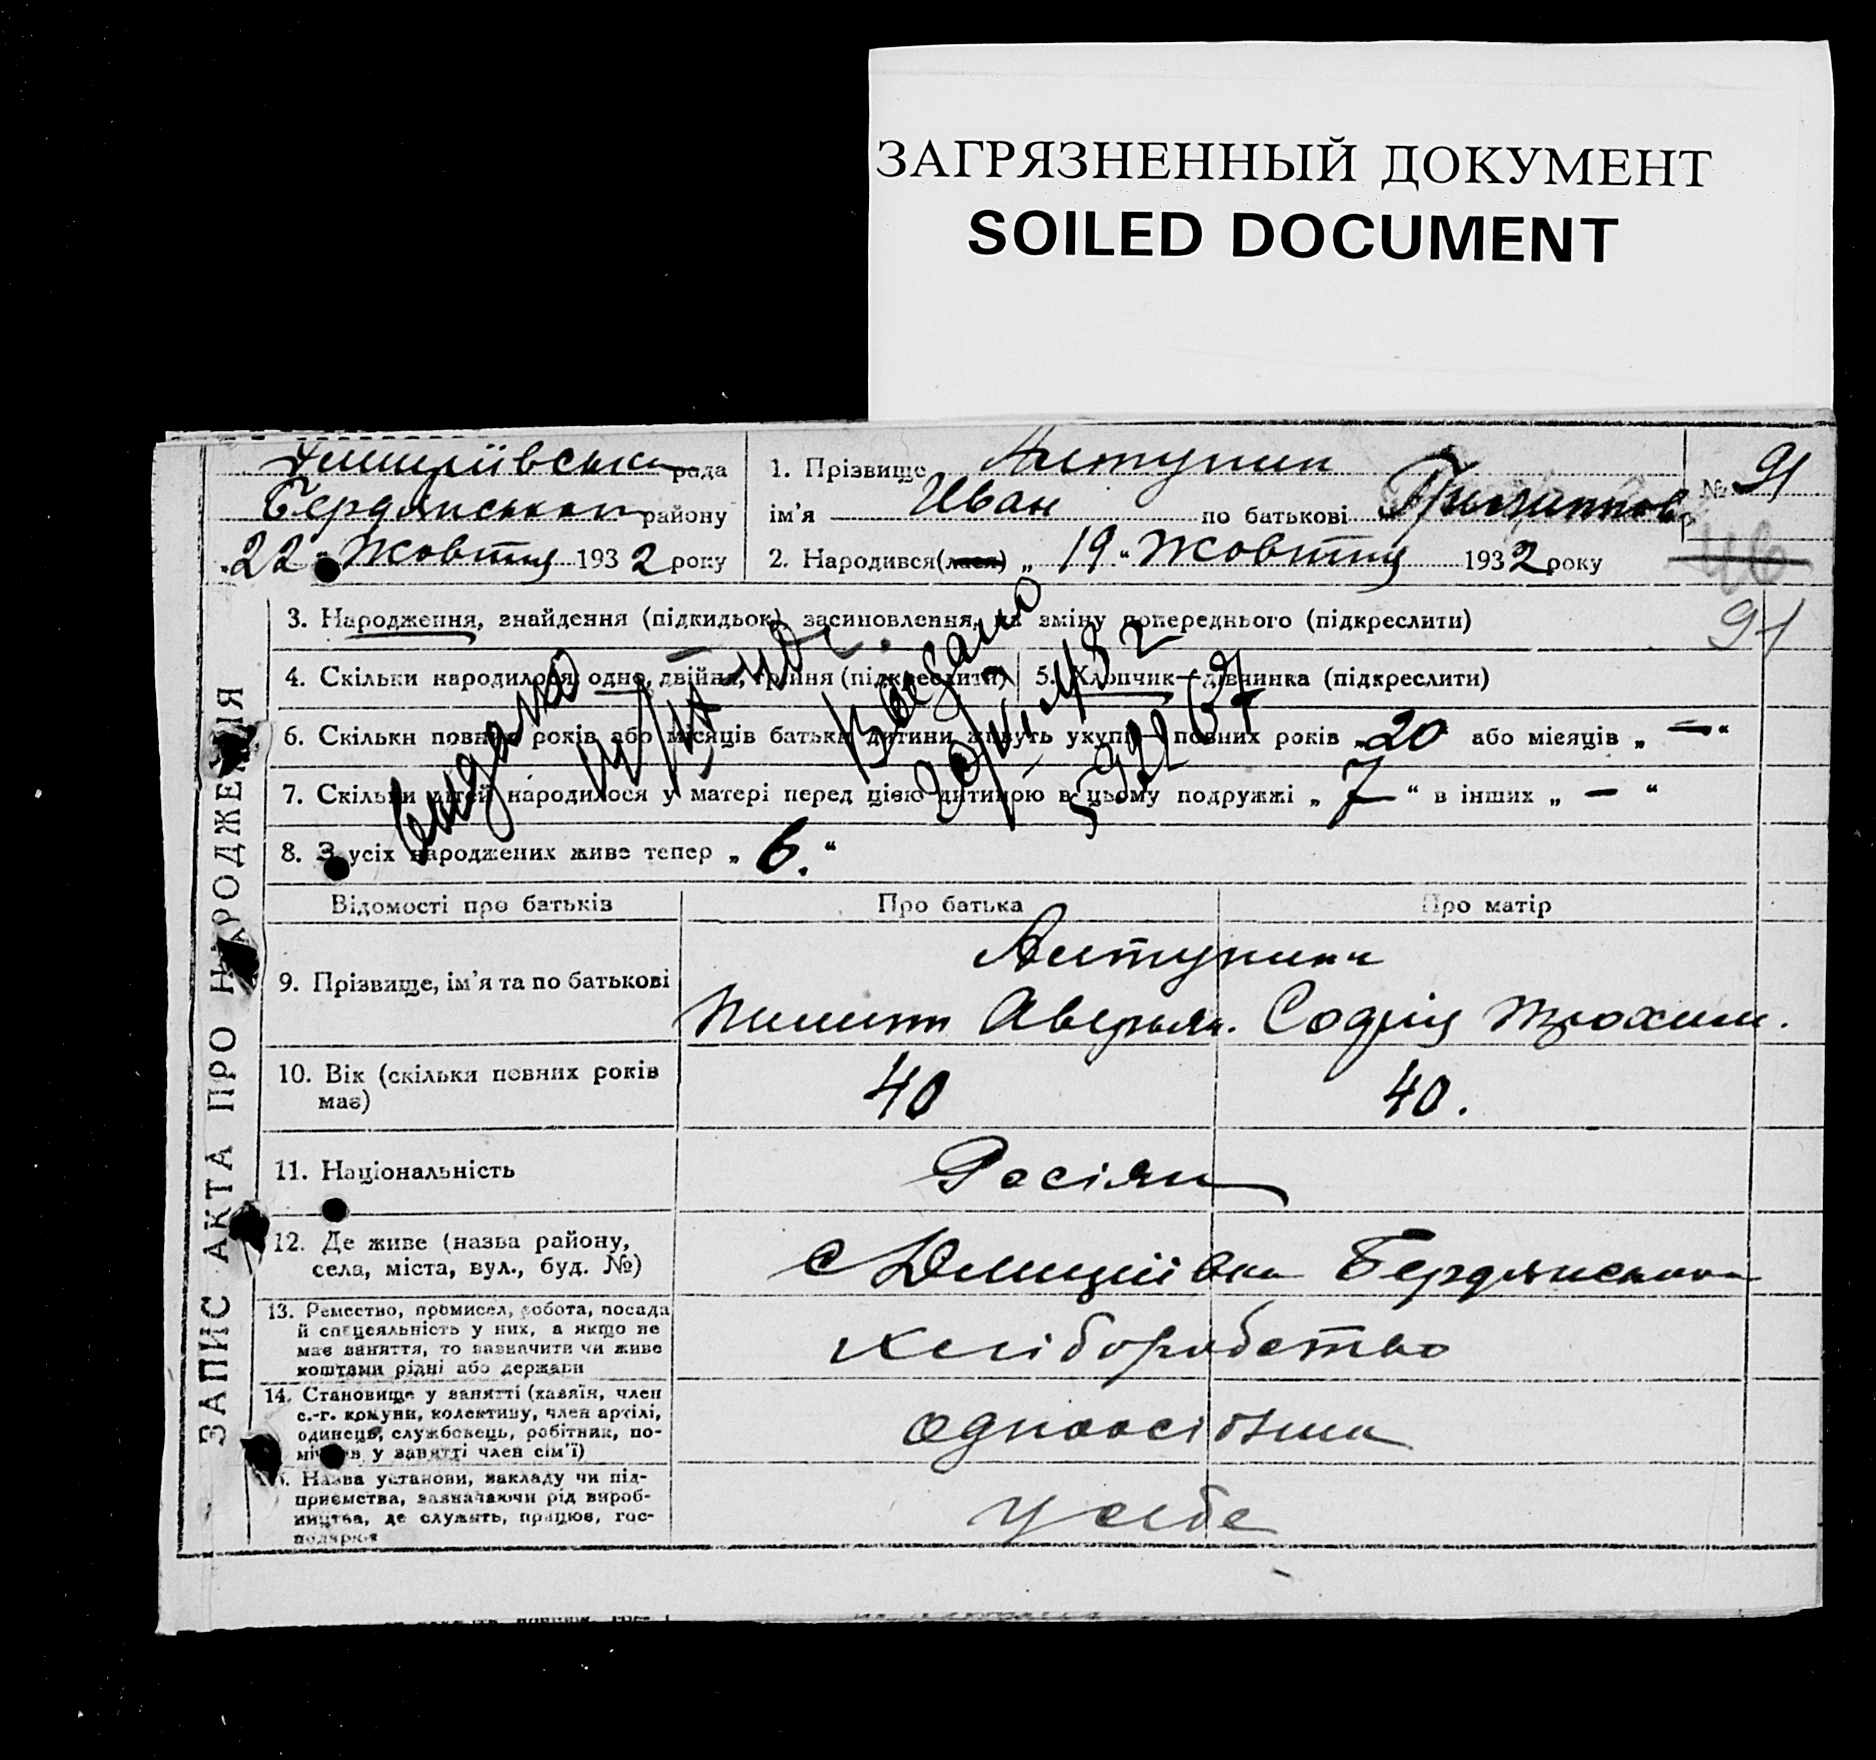 ЗАГРЯЗНЕННЫЙ ДОКУМЕНТ
SOILED DOCUMENT
рада
Бердянського району
22 Жовтня 1932 року
1. Прізвище
ім'я Иван по батькові
2. Народився(лася) „19“ Жовтня 1932 року
№ 91
46
91
ЗАПИС АКТА ПРО НАРОДЖЕННЯ
3. Народження, знайдення (підкидьок), засиновлення, на зміну попереднього (підкреслити)
4. Скільки народилося: одно, двійня, трійня (підкреслити)
5. Хлопчик—дівчинка (підкреслити)
6. Скільки повних років або місяців батьки дитини живуть укупі: повних років „20 або місяців „—“
7. Скільки дітей народилося у матері перед цією дитиною в цьому подружжі „7“ в інших „—“
8. З усіх народжених живе тепер „6.“
Видано
Відомості про батьків
Про батька
Про матір
9. Прізвище, ім'я та по батькові
10. Вік (скільки повних років
має)
40
40.
11. Національність
Росіяни
12. Де живе (назва району,
села, міста, вул., буд. №)
с Бердянського
13. Ремество, промисел, робота, посада
й спеціяльність у них, а якщо не
має заняття, то зазначити чи живе
коштами рідні або держави
хліборобство
14. Становище у занятті (хазяїн, член
с.-г. комуни, колективу, член артілі,
одинець, службовець, робітник, по-
мічник у занятті член сім'ї)
одноосібники
15. Назва установи, закладу чи під-
приємства, зазначаючи рід вироб-
ництва, де служить, працює, гос-
подарює
у себе